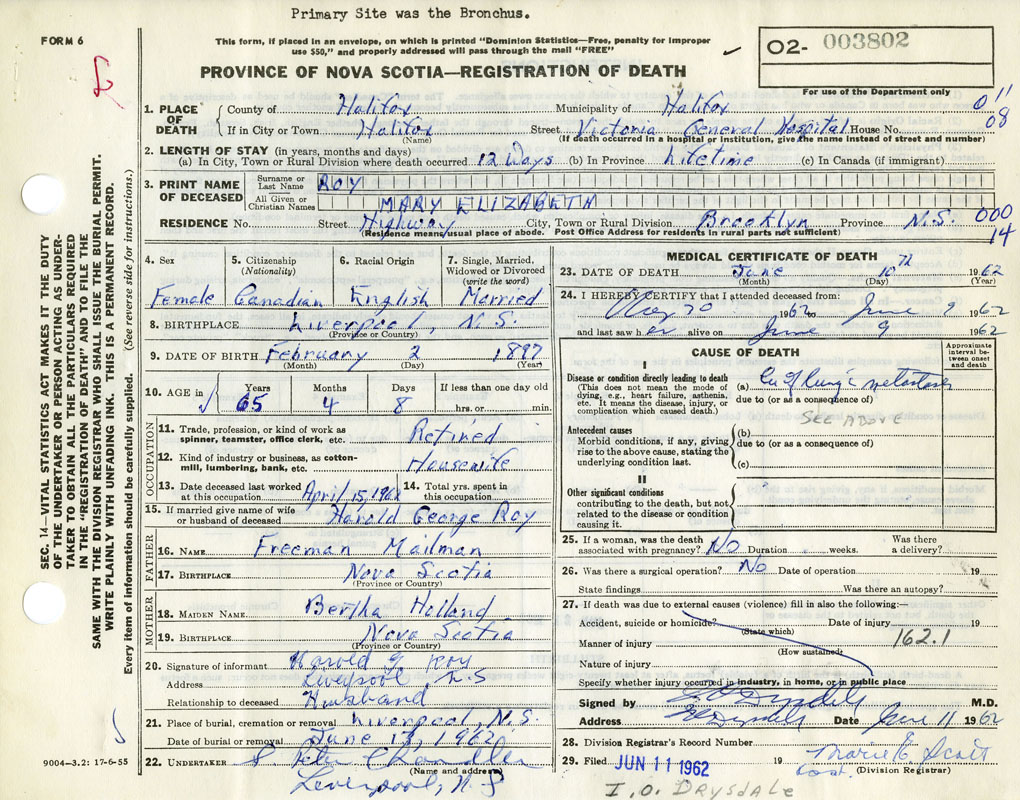 Primary Site was the Bronchus.
FORM 6
This form, if placed in an envelope, on which is printed "Dominion Statistics—Free, penalty for improper
use $50," and properly addressed will pass through the mail "FREE"
O2- 003802
PROVINCE OF NOVA SCOTIA—REGISTRATION OF DEATH
For use of the Department only
1. PLACE OF DEATH County of Halifax Municipality of Halifax 0 11
If in City or Town Halifax Street Victoria General Hospital House No. 08
(Name) (If death occurred in a hospital or institution, give the name instead of street and number)
2. LENGTH OF STAY (in years, months and days)
(a) In City, Town or Rural Division where death occurred 12 Days (b) In Province Lifetime (c) In Canada (if immigrant)
3. PRINT NAME OF DECEASED Surname or Last Name ROY
All Given or Christian Names MARY ELIZABETH
RESIDENCE No. Street Highway City, Town or Rural Division Brooklyn Province N.S. 000
(Residence means usual place of abode. Post Office Address for residents in rural parts not sufficient) 14
4. Sex 5. Citizenship (Nationality) 6. Racial Origin 7. Single, Married, Widowed or Divorced (write the word)
Female Canadian English Married
8. BIRTHPLACE Liverpool, N.S.
(Province or Country)
9. DATE OF BIRTH February 2 1897
(Month) (Day) (Year)
10. AGE in Years Months Days If less than one day old
65 4 8 hrs. or min.
OCCUPATION
11. Trade, profession, or kind of work as spinner, teamster, office clerk, etc. Retired
12. Kind of industry or business, as cotton-mill, lumbering, bank, etc. Housewife
13. Date deceased last worked at this occupation April 15, 1962 14. Total yrs. spent in this occupation
15. If married give name of wife or husband of deceased Harold George Roy
FATHER
16. NAME Freeman Mailman
17. BIRTHPLACE Nova Scotia
(Province or Country)
MOTHER
18. MAIDEN NAME Bertha Holland
19. BIRTHPLACE Nova Scotia
(Province or Country)
20. Signature of informant Harold G. Roy
Address Liverpool N.S
Relationship to deceased Husband
21. Place of burial, cremation or removal Liverpool, N.S.
Date of burial or removal June 13, 1962
22. UNDERTAKER Chandler
(Name and address)
Liverpool, N.S
MEDICAL CERTIFICATE OF DEATH
23. DATE OF DEATH June 10th 1962
(Month) (Day) (Year)
24. I HEREBY CERTIFY that I attended deceased from:
May 30 1962 to June 9 1962
and last saw her alive on June 9 1962
CAUSE OF DEATH
Approximate interval between onset and death
I
Disease or condition directly leading to death
(This does not mean the mode of dying, e.g., heart failure, asthenia, etc. It means the disease, injury, or complication which caused death.)
(a) Ca of lung c metastases
due to (or as a consequence of)
SEE ABOVE
Antecedent causes
Morbid conditions, if any, giving rise to the above cause, stating the underlying condition last.
(b)
due to (or as a consequence of)
(c)
II
Other significant conditions
contributing to the death, but not related to the disease or condition causing it.
25. If a woman, was the death associated with pregnancy? No Duration weeks. Was there a delivery?
26. Was there a surgical operation? No Date of operation 19
State findings Was there an autopsy?
27. If death was due to external causes (violence) fill in also the following:—
Accident, suicide or homicide? Date of injury 19
(State which)
Manner of injury 162.1
(How sustained)
Nature of injury
Specify whether injury occurred in industry, in home, or in public place
Signed by M.D.
Address Date June 11 1962
28. Division Registrar's Record Number
29. Filed JUN 11 1962 19 Marie E. Scott
(Division Registrar)
I.O. DRYSDALE
SEC. 14—VITAL STATISTICS ACT MAKES IT THE DUTY
OF THE UNDERTAKER OR PERSON ACTING AS UNDER-
TAKER TO OBTAIN ALL THE PARTICULARS REQUIRED
IN THE "REGISTRATION OF DEATH" AND TO FILE THE
SAME WITH THE DIVISION REGISTRAR WHO SHALL ISSUE THE BURIAL PERMIT.
WRITE PLAINLY WITH UNFADING INK. THIS IS A PERMANENT RECORD.
Every item of information should be carefully supplied. (See reverse side for instructions.)
9004-3.2: 17-6-55